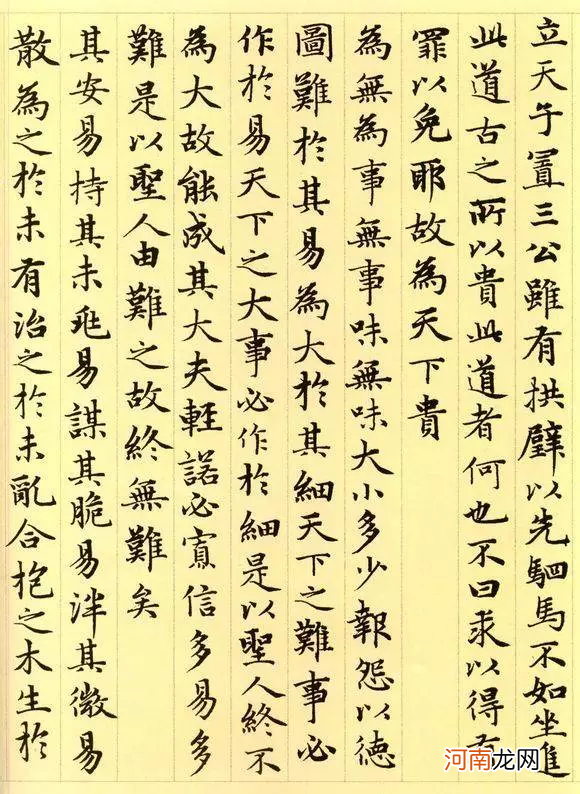 立天子置三公雖有拱璧以先駟馬不如坐進
此道古之所以貴此道者何也不曰求以得有
罪以免耶故為天下貴
為無為事無事味無味大小多少報怨以徳
圖難於其易為大於其細天下之難事必
作於易天下之大事必作於細是以聖人終不
為大故能成其大夫輕諾必寡信多易多
難是以聖人由難之故終無難矣
其安易持其未兆易謀其脆易泮其微易
散為之於未有治之於未亂合抱之木生於
河南龙网